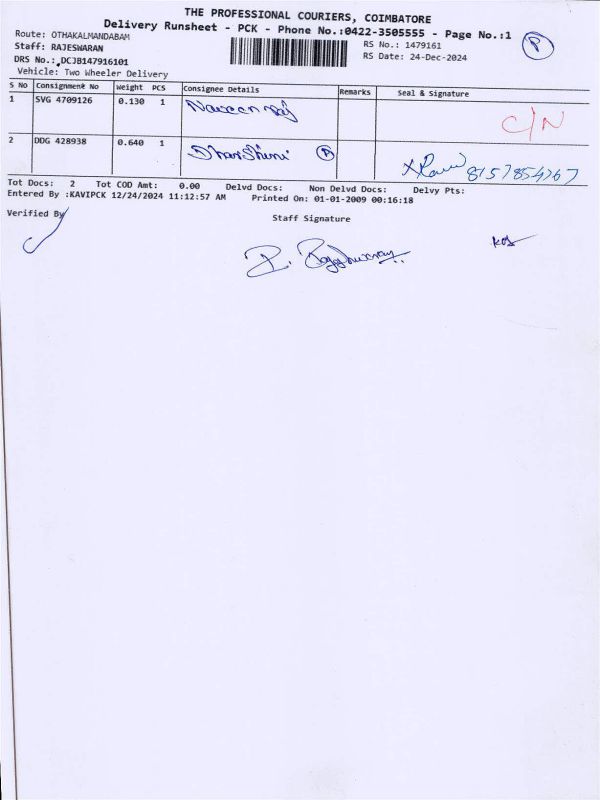 THE PROFESSIONAL COURIERS, COIMBATORE
Delivery Runsheet - PCK - Phone No.:0422-3505555 - Page No.:1 P
Route: OTHAKALMANDABAM RS No.: 1479161
Staff: RAJESWARAN RS Date: 24-Dec-2024
DRS No.: DCJB147916101
Vehicle: Two Wheeler Delivery
S No Consignment No Weight PCS Consignee Details Remarks Seal & Signature
1 SVG 4709126 0.130 1 Naveen raj C/N
2 DDG 428938 0.640 1 Dharshini P 8157854767
Tot Docs: 2 Tot COD Amt: 0.00 Delvd Docs: Non Delvd Docs: Delvy Pts:
Entered By :KAVIPCK 12/24/2024 11:12:57 AM Printed On: 01-01-2009 00:16:18
Verified By Staff Signature